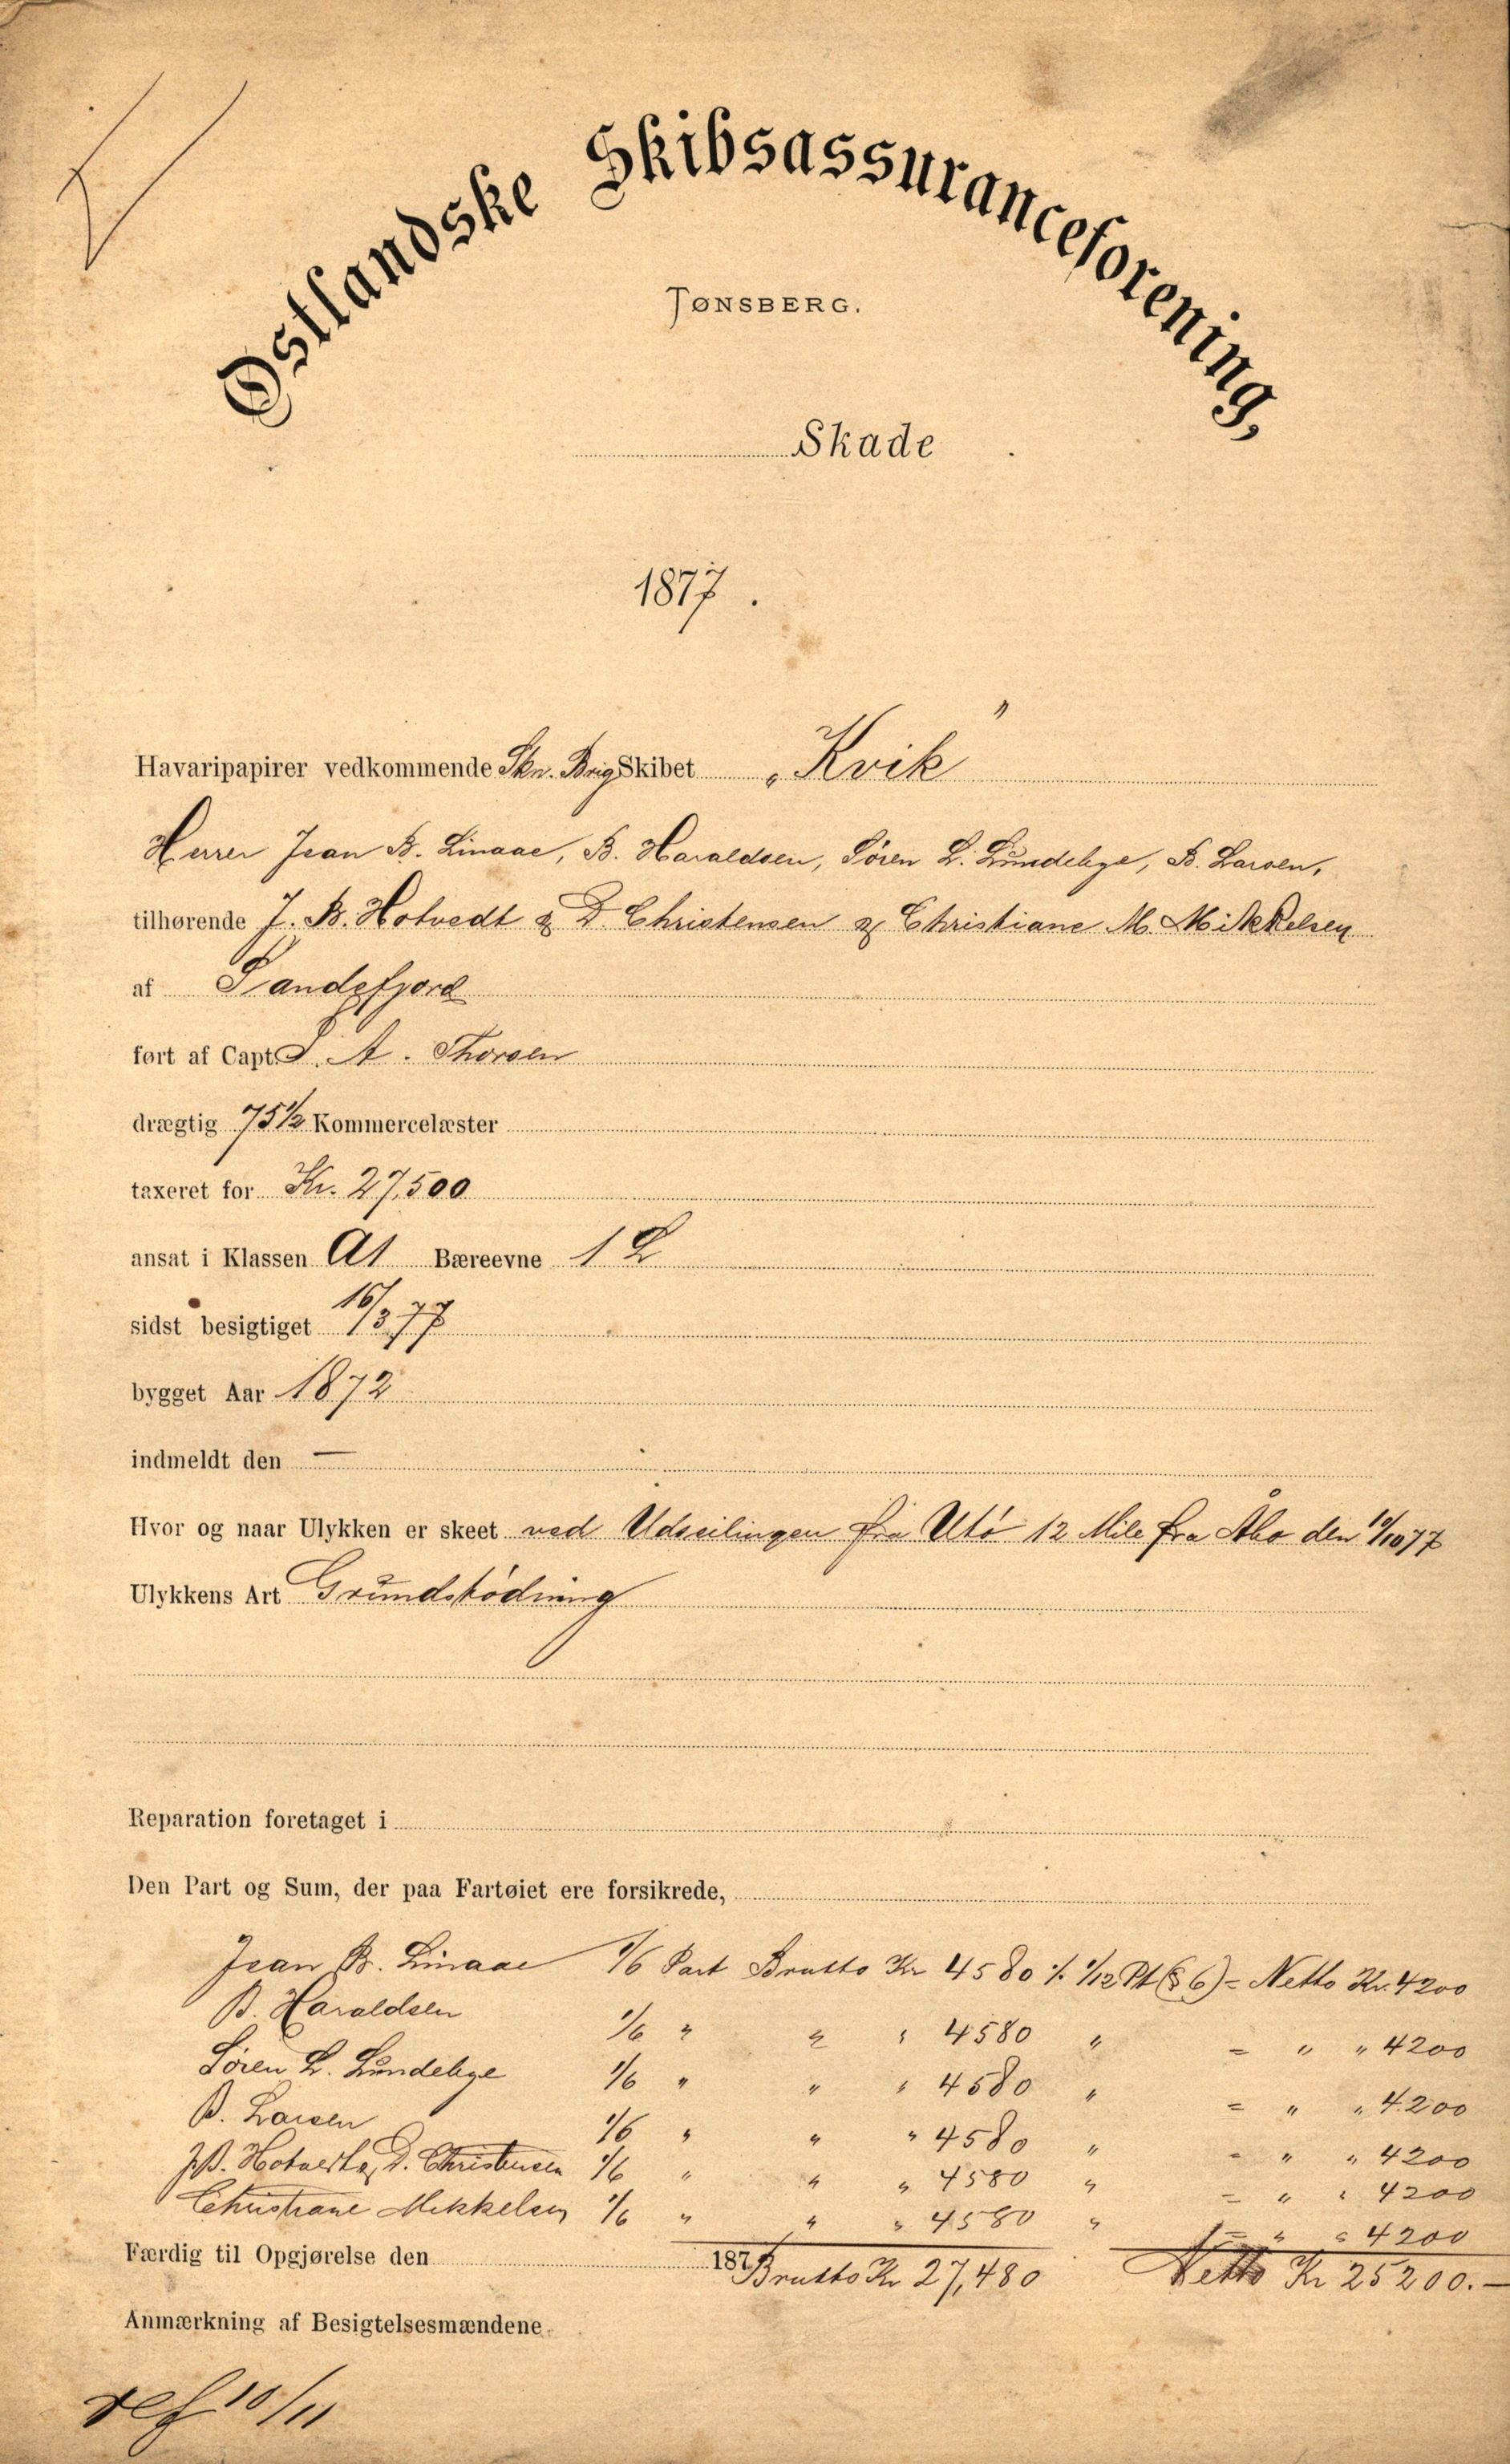 Østlandske Skibsassuranceforening,
TØNSBERG.
Skade
1877.
Havaripapirer vedkommende Skn. Brig Skibet „Kvik"
Herrer Jean B. Linaae, B. Haraldsen, Søren L. Lundebye, B. Larsen,
tilhørende J. B. Hotvedt & D. Christensen & Christiane M. Mikkelsen
af Sandefjord
ført af Capt. A. Thorsen
drægtig 75½ Kommercelæster
taxeret for Kr. 27,500
ansat i Klassen A1 Bæreevne 1 L
sidst besigtiget 16/3 77
bygget Aar 1872
indmeldt den —
Hvor og naar Ulykken er skeet ved Udseilingen fra Utö 12 Mile fra Åbo den 10/10 77
Ulykkens Art Grundstödning
Reparation foretaget i
Den Part og Sum, der paa Fartøiet ere forsikrede,
Jean B. Linaae 1/6 Part Brutto Kr 4580 ⁒ 1/12 Pt (§ 6) = Netto Kr. 4200
B. Haraldsen 1/6 " " " 4580 " = " " 4200
Søren L. Lundebye 1/6 " " " 4580 " = " " 4200
B. Larsen 1/6 " " " 4580 " = " " 4200
J.B. Hotvedt & D. Christensen 1/6 " " " 4580 " = " " 4200
Christiane Mikkelsen 1/6 " " " 4580 " = " " 4200
Færdig til Opgjørelse den 187 Brutto Kr 27,480 Netto Kr 25200.—
Anmærkning af Besigtelsesmændene.
ref 10/11